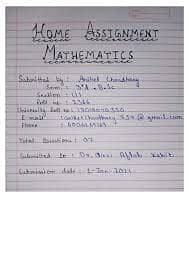 HOME ASSIGNMENT
MATHEMATICS
Submitted by : Aniket Choudhary
Sem. : 3rd, B.Sc
Section : (I)
Roll no. : 2366
University Roll no :
E mail :
Phone :
Total Questions : 07
Submitted to : Dr.
Submission date : 1-Jan-2021